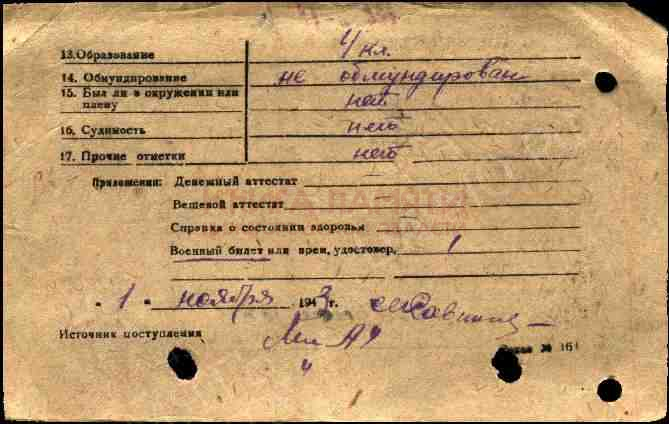 13. Образование 4 кл.
14. Обмундирование не обмундирован
15. Был ли в окружении или плену нет
16. Судимость нет
17. Прочие отметки нет
Приложения: Денежный аттестат
Вещевой аттестат
Справка о состоянии здоровья
Военный билет или врем. удостовер. 1
" 1 " ноября 1943 г.
Источник поступления
Заказ № 161